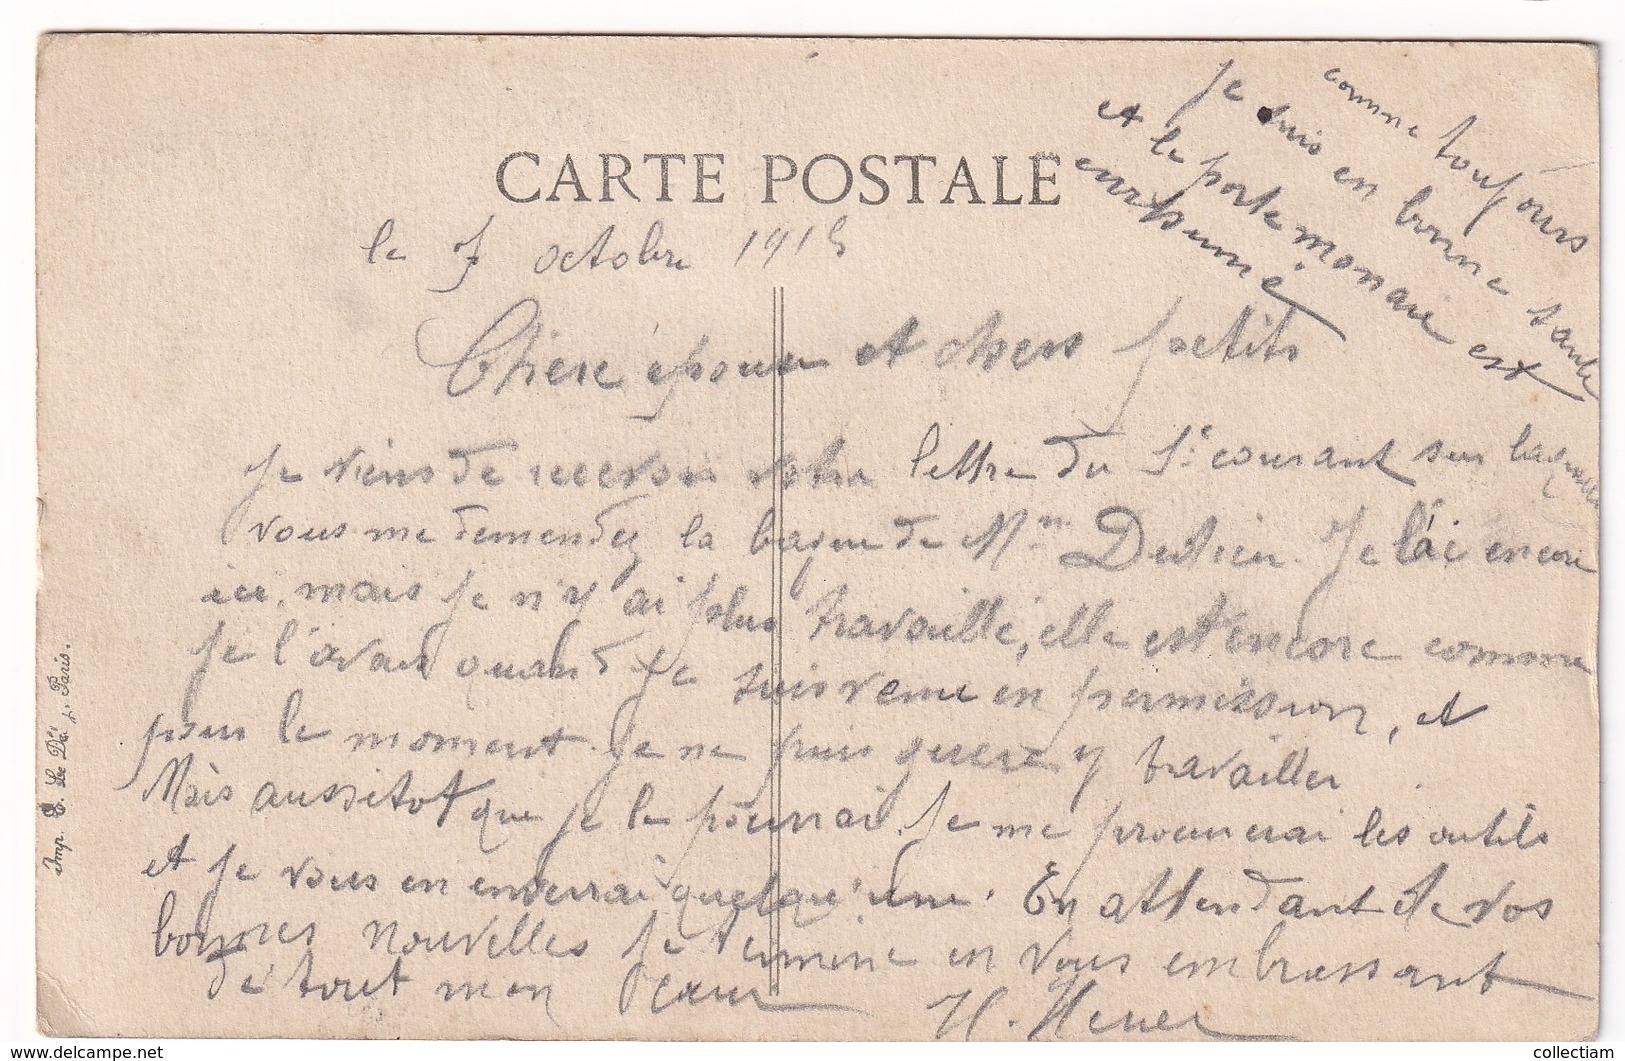 comme toujours
je suis en bonne sante
et le porte monnaie est
enrhumé
CARTE POSTALE
le 7 octobre 1915
Chère épouse et chers petits
Je viens de recevoir votre lettre du 1e courant sur laquelle
vous me demendez la bague de Mr Je l'ai encore
ici, mais je n'y ai plus travaillé, elle est encore comme
je l'avais quand je suis venu en permission, et
pour le moment je ne puis guere y travailler
Mais aussitot que je le pourrai je me procurerai les outils
et je vous en enverrai quelqu'une. En attendant de vos
bonnes nouvelles je termine en vous embrassant
de tout mon cœur
H.
Imp. E. Le Deley, Paris.
collectiam